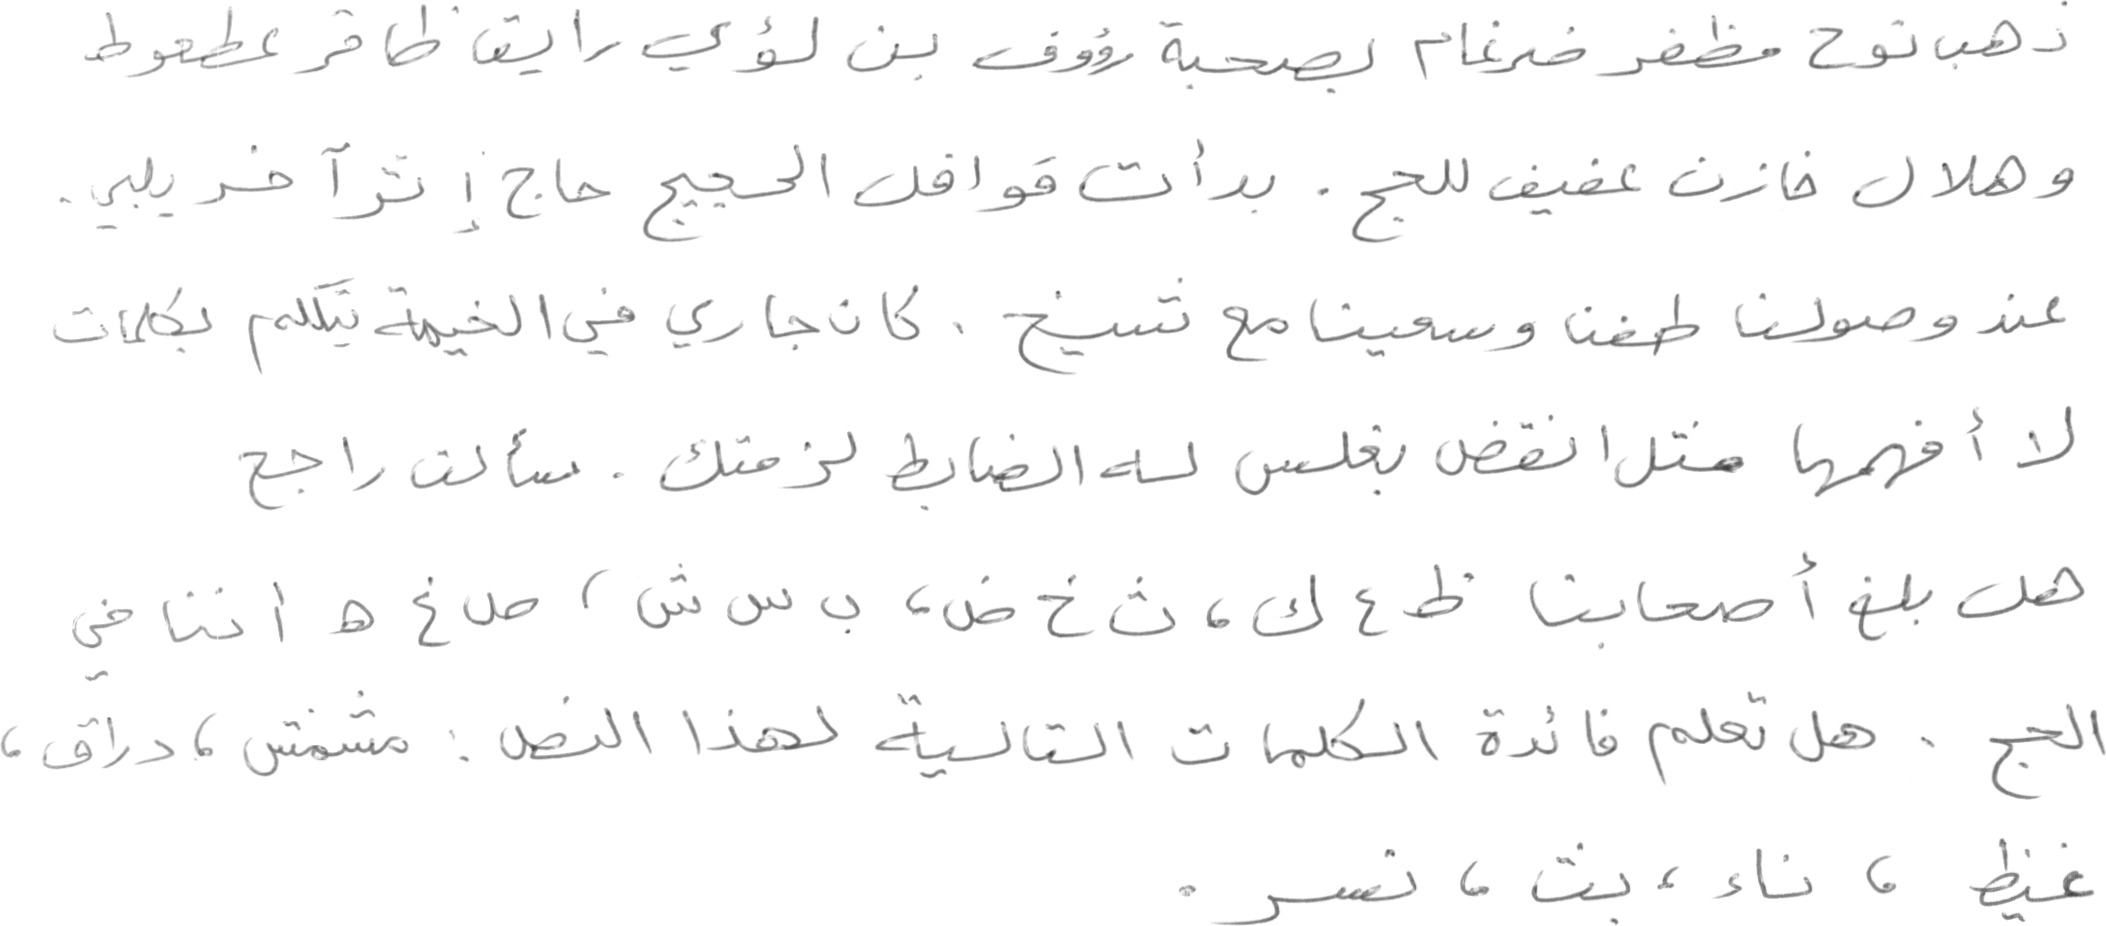 ذهب نوح مظفر ضرغام بصحبة رؤوف بن لؤي رايق ظافر عطعوط
وهلال خازن عفيف للحج . بدأت قوافل الحجيج حاج إثر آخر يلبي .
عند وصولنا طفنا وسعينا مع شيخ . كان جاري في الخيمة يتكلم بكلمات
لا أفهمها مثل انقض بغلس له الضابط لزمتك . سألت راجح
هل بلغ أصحابنا ظ ع ك ، ث خ ض ، ب س ش ، ص غ ه أننا في
الحج . هل تعلم فائدة الكلمات التالية لهذا النص : مشمش ، دراق ،
غيظ ، ناء ، بث ، نسر .